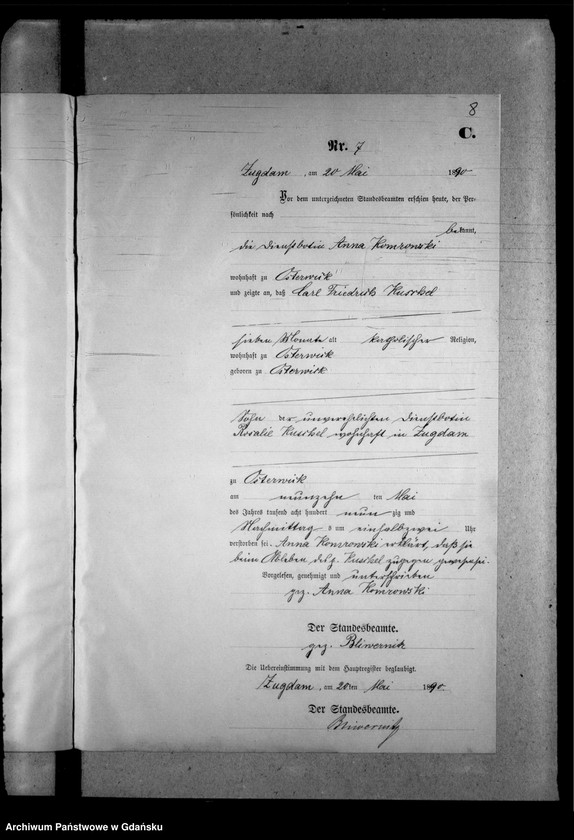 8
C.
Nr. 7
Zugdam, am 20 Mai 1890
Vor dem unterzeichneten Standesbeamten erschien heute, der Per-
sönlichkeit nach
bekannt,
die Dienstbotin Anna Komrowski
wohnhaft zu Osterwick
und zeigte an, daß Carl Friedrich Kuschel
sieben Monate alt katholischer Religion,
wohnhaft zu Osterwick
geboren zu Osterwick
Sohn der unverehelichten Dienstbotin
Rosalie Kuschel wohnhaft in Zugdam
zu Osterwick
am neunzehn ten Mai
des Jahres tausend acht hundert neun zig und
Nachmittag s um einhalbzwei Uhr
verstorben sei. Anna Komrowski erklärt, daß sie
beim Ableben des p. Kuschel zugegen gewesen sei.
Vorgelesen, genehmigt und unterschrieben
gez. Anna Komrowski
Der Standesbeamte.
gez. Bliwernitz
Die Uebereinstimmung mit dem Hauptregister beglaubigt.
Zugdam, am 20ten Mai 1890
Der Standesbeamte.
Bliwernitz
Archiwum Państwowe w Gdańsku